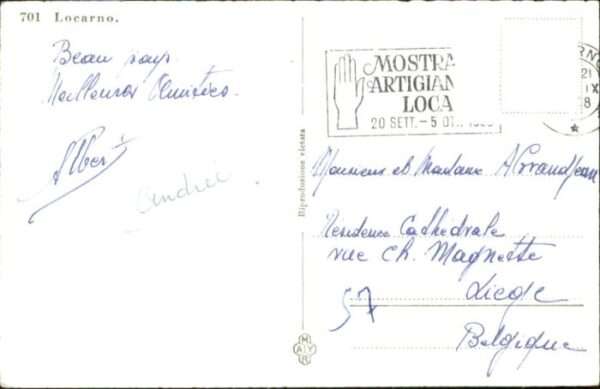 701 Locarno.
Beau pays
Meilleures Amitiés.
Albert
Andrée
Riproduzione vietata
MOSTRA
ARTIGIAN
LOCA
20 SETT. - 5 OTT.
21
IX
8
Monsieur et Madame A Grandjean
Résidence Cathédrale
rue Ch. Magnette
57
Liege
Belgique
MAYR